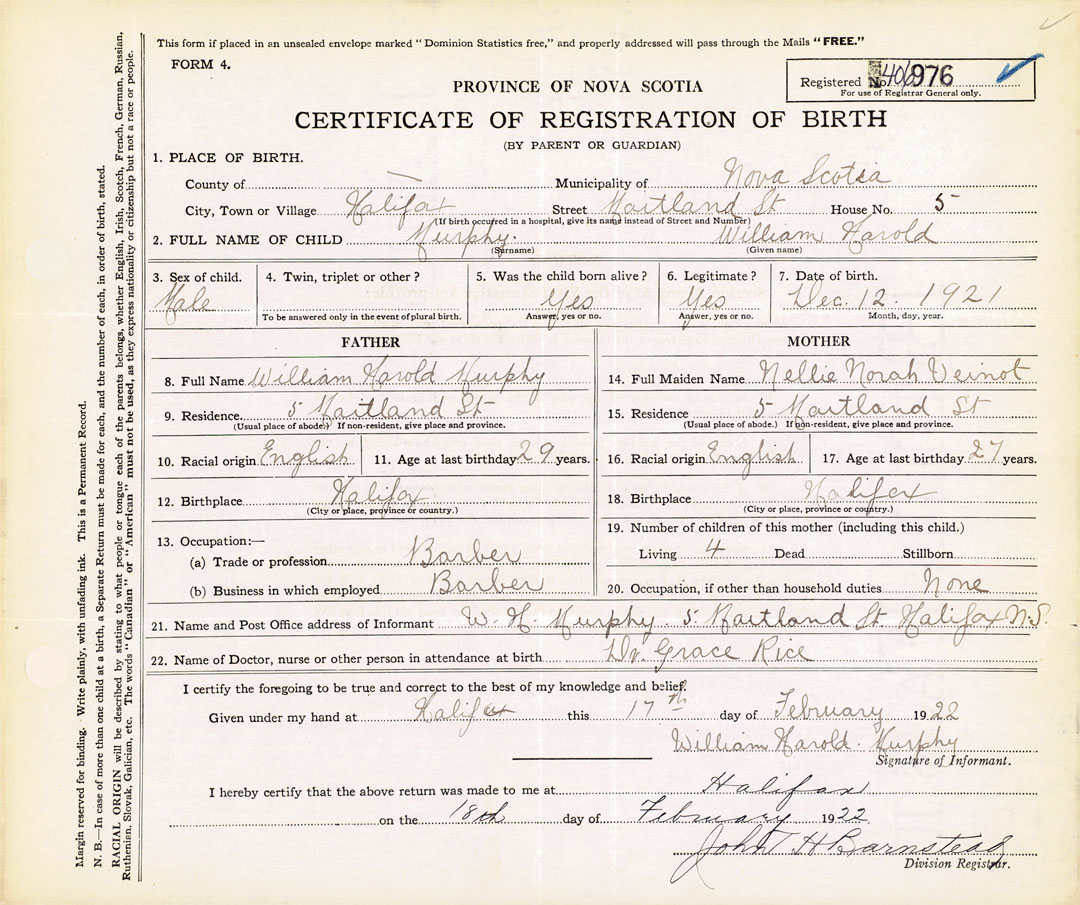 This form if placed in an unsealed envelope marked “Dominion Statistics free,” and properly addressed will pass through the Mails “FREE.”
FORM 4.
Registered No. 976
For use of Registrar General only.
PROVINCE OF NOVA SCOTIA
CERTIFICATE OF REGISTRATION OF BIRTH
(BY PARENT OR GUARDIAN)
1. PLACE OF BIRTH.
County of — Municipality of Nova Scotia
City, Town or Village Halifax Street Maitland St House No. 5
(If birth occurred in a hospital, give its name instead of Street and Number)
2. FULL NAME OF CHILD Murphy. William Harold
(Surname) (Given name)
3. Sex of child. 4. Twin, triplet or other? 5. Was the child born alive? 6. Legitimate? 7. Date of birth.
Male Yes Yes Dec. 12. 1921
To be answered only in the event of plural birth. Answer, yes or no. Answer, yes or no. Month, day, year.
FATHER MOTHER
8. Full Name William Harold Murphy 14. Full Maiden Name Nellie Norah Veinot
9. Residence. 5 Maitland St 15. Residence 5 Maitland St
(Usual place of abode.) If non-resident, give place and province. (Usual place of abode.) If non-resident, give place and province.
10. Racial origin English 11. Age at last birthday 29 years. 16. Racial origin English 17. Age at last birthday 27 years.
12. Birthplace Halifax 18. Birthplace Halifax
(City or place, province or country.) (City or place, province or country.)
13. Occupation:— 19. Number of children of this mother (including this child.)
(a) Trade or profession Barber Living 4 Dead Stillborn
(b) Business in which employed Barber 20. Occupation, if other than household duties None
21. Name and Post Office address of Informant W. H. Murphy. 5. Maitland St. Halifax N.S.
22. Name of Doctor, nurse or other person in attendance at birth Dr. Grace Rice
I certify the foregoing to be true and correct to the best of my knowledge and belief.
Given under my hand at Halifax this 17th day of February 1922
William Harold. Murphy
Signature of Informant.
I hereby certify that the above return was made to me at Halifax
on the 18th day of February 1922
John H Barnstead
Division Registrar.
Margin reserved for binding. Write plainly, with unfading ink. This is a Permanent Record.
N. B.—In case of more than one child at a birth, a Separate Return must be made for each, and the number of each, in order of birth, stated.
RACIAL ORIGIN will be described by stating to what people or tongue each of the parents belongs, whether English, Irish, Scotch, French, German, Russian,
Ruthenian, Slovak, Galician, etc. The words “Canadian” or “American” must not be used, as they express nationality or citizenship but not a race or people.